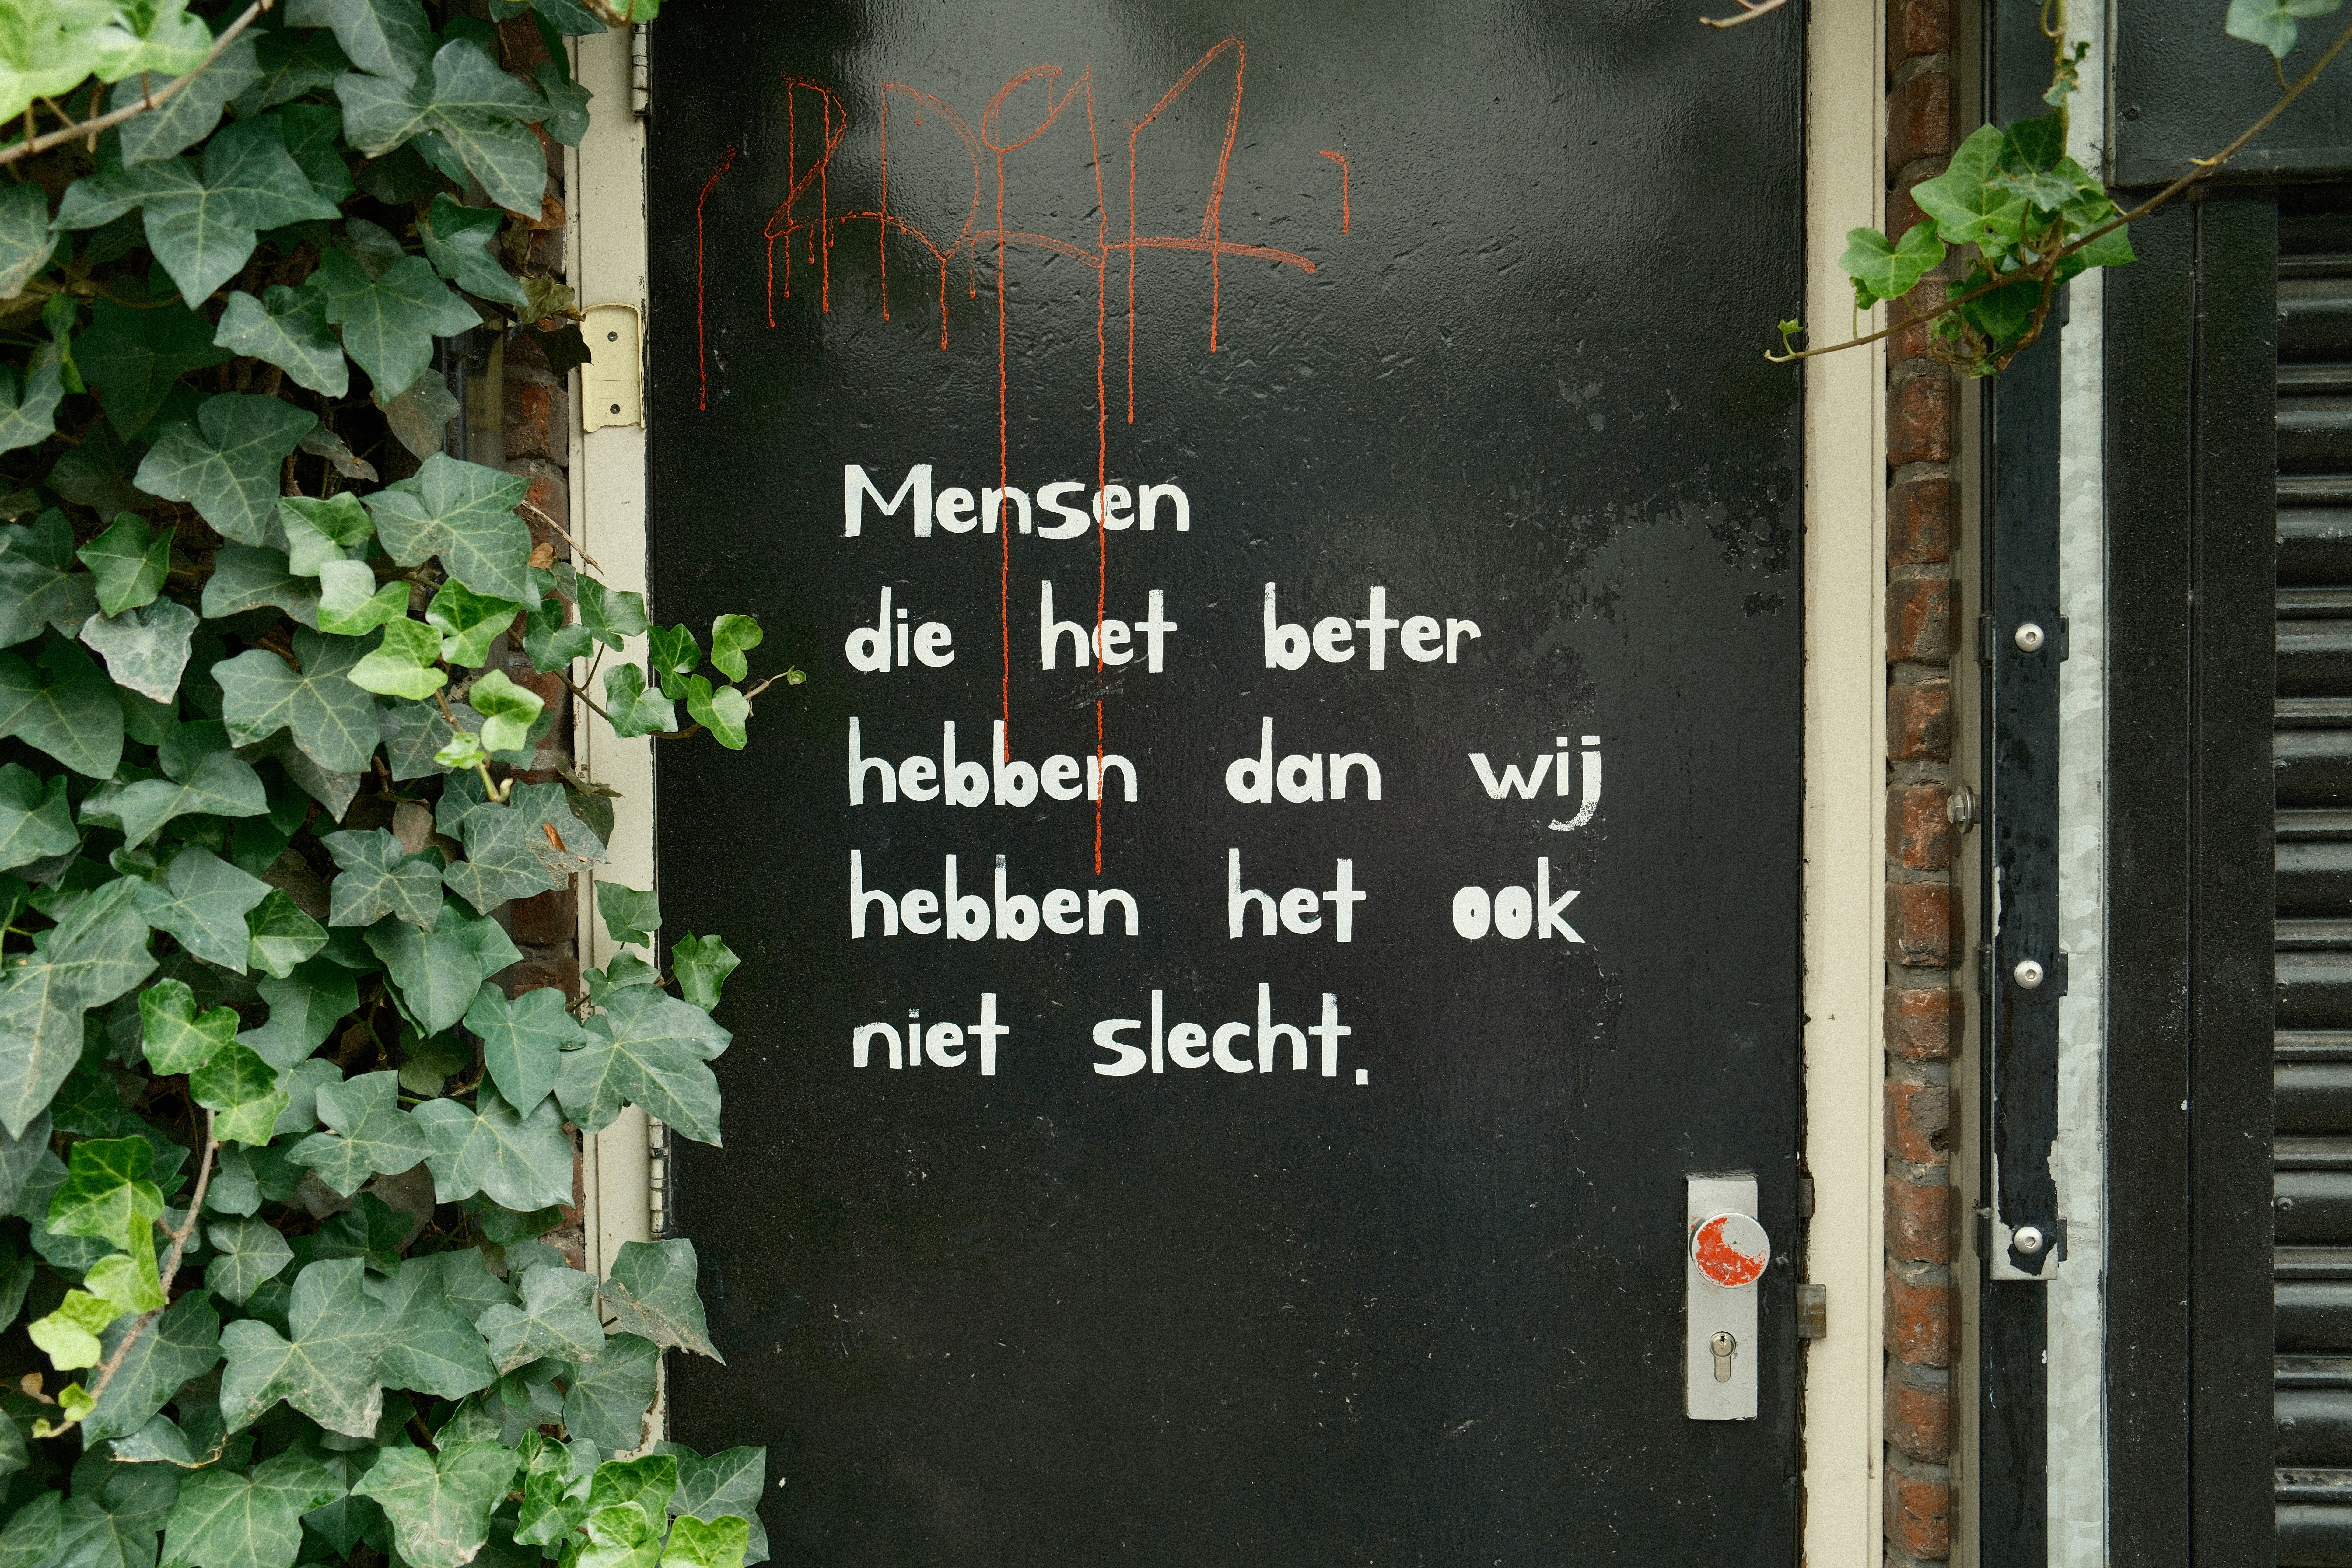 Mensen
die het beter
hebben dan wij
hebben het ook
niet slecht.